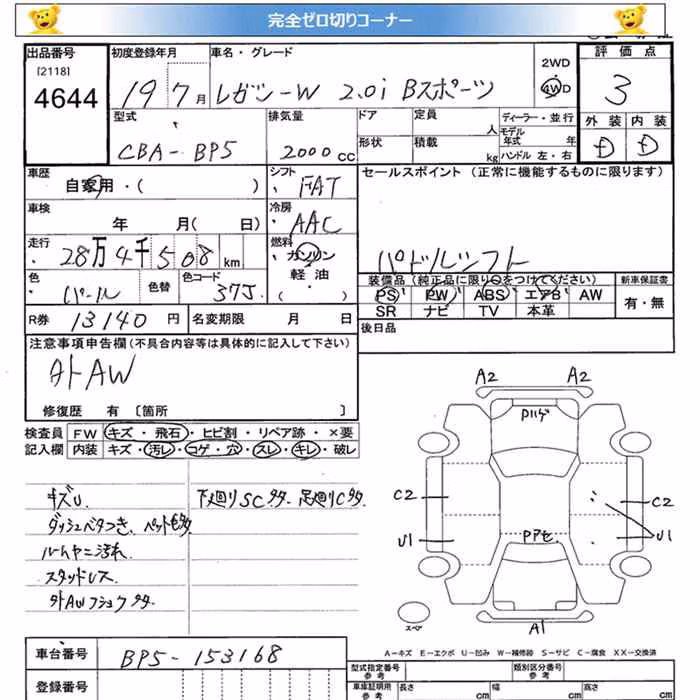 完全ゼロ切りコーナー
出品番号 初度登録年月 車名・グレード 評価点
[2118]
4644 19 7月 レガシーW 2.0i Bスポーツ 2WD 4WD 3
型式 排気量 ドア 定員 人 ディーラー・並行 外装 内装
CBA-BP5 2000cc 形状 積載 kg モデル年式 年 ハンドル 左・右 D D
車歴 シフト セールスポイント (正常に機能するものに限ります)
自家用・( ) FAT
車検 冷房
年 月( 日) AAC
走行 燃料
28万4千508km ガソリン パドルシフト
軽油
・( )
色 色替 色コード 装備品 (純正品に限り○をつけてください) 新車保証書
パール 37J PS PW ABS エアB AW 有・無
SR ナビ TV 本革
R券 13140円 名変期限 月 日 後日品
注意事項申告欄 (不具合内容等は具体的に記入して下さい)
外AW
修復歴 有 [箇所 ]
検査員 FW キズ・飛石・ヒビ割・リペア跡・×要
記入欄 内装 キズ・汚レ・コゲ・穴・スレ・キレ・破レ
A2 A2
Pハゲ
キズU. 下廻りSC多タ. 足廻りC多タ.
ダッシュベタつき. ペット毛多タ.
ルームヤニ汚れ.
スタッドレス
外AWフショク多タ.
C2 C2
U1 U1
Pアセ.
スペア
A1
A-キズ E-エクボ U-凹み W-補修跡 S-サビ C-腐食 XX-交換済
車台番号 BP5-153168 型式指定番号 参考 類別区分番号 参考
登録番号 車庫証明用 参考 長さ cm 幅 cm 高さ cm